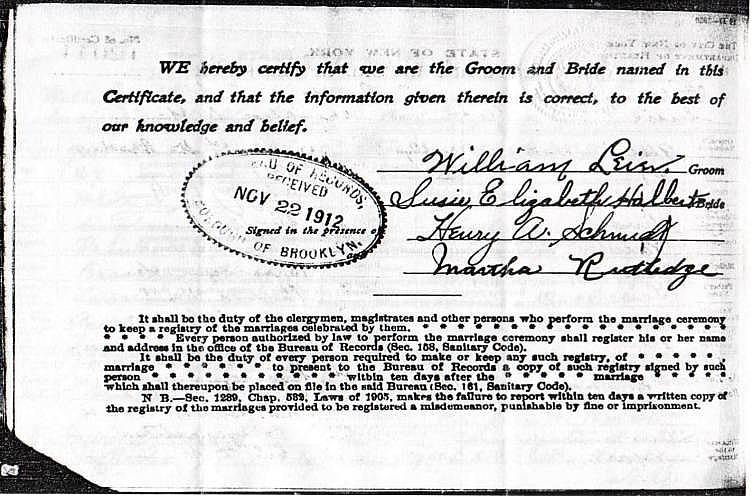 WE hereby certify that we are the Groom and Bride named in this
Certificate, and that the information given therein is correct, to the best of
our knowledge and belief.
William Leis. Groom
Susie Elizabeth Halbert Bride
Signed in the presence o
Henry A. Schmidt
Martha Rutledge
EAU OF RECORDS,
RECEIVED
NOV 22 1912
BOROUGH OF BROOKLYN.
It shall be the duty of the clergymen, magistrates and other persons who perform the marriage ceremony
to keep a registry of the marriages celebrated by them. * * * * * * * * * * * * * * * *
* * * * Every person authorized by law to perform the marriage ceremony shall register his or her name
and address in the office of the Bureau of Records (Sec. 158, Sanitary Code).
It shall be the duty of every person required to make or keep any such registry, of * * * * * *
marriage * * * * * * to present to the Bureau of Records a copy of such registry signed by such
person * * * * * * * * * within ten days after the * * * * marriage * * * * *
which shall thereupon be placed on file in the said Bureau (Sec. 161, Sanitary Code).
N B.—Sec. 1239, Chap. 582, Laws of 1905, makes the failure to report within ten days a written copy of
the registry of the marriages provided to be registered a misdemeanor, punishable by fine or imprisonment.